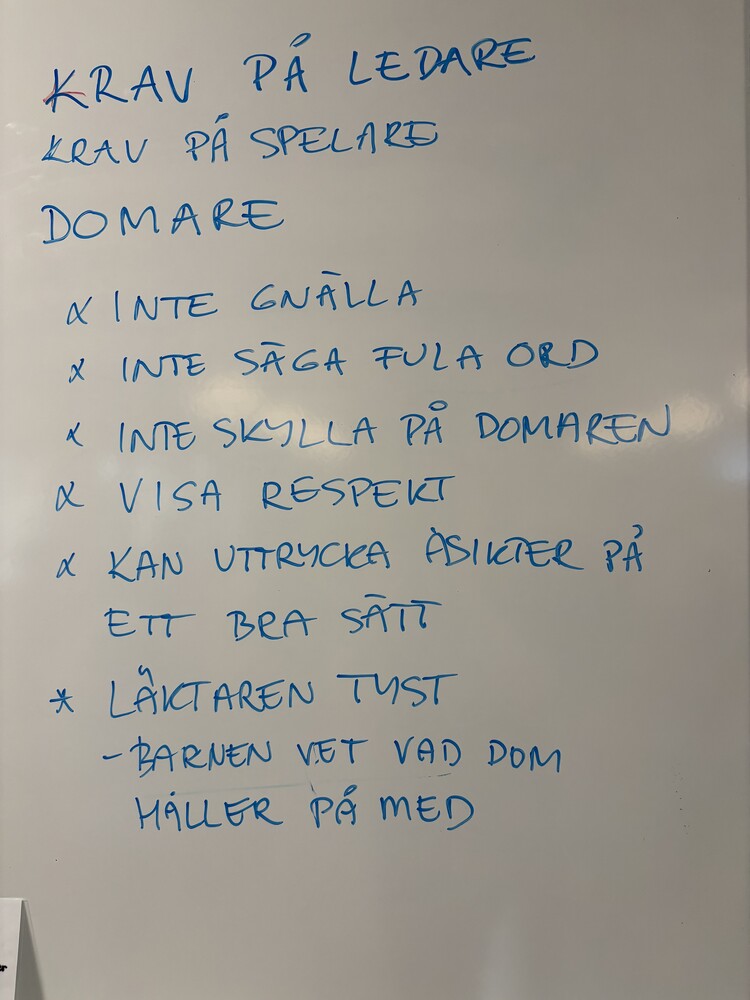 KRAV PÅ LEDARE
KRAV PÅ SPELARE
DOMARE
x INTE GNÄLLA
x INTE SÄGA FULA ORD
x INTE SKYLLA PÅ DOMAREN
x VISA RESPEKT
x KAN UTTRYCKA ÅSIKTER PÅ
ETT BRA SÄTT
* LÄKTAREN TYST
- BARNEN VET VAD DOM
HÅLLER PÅ MED